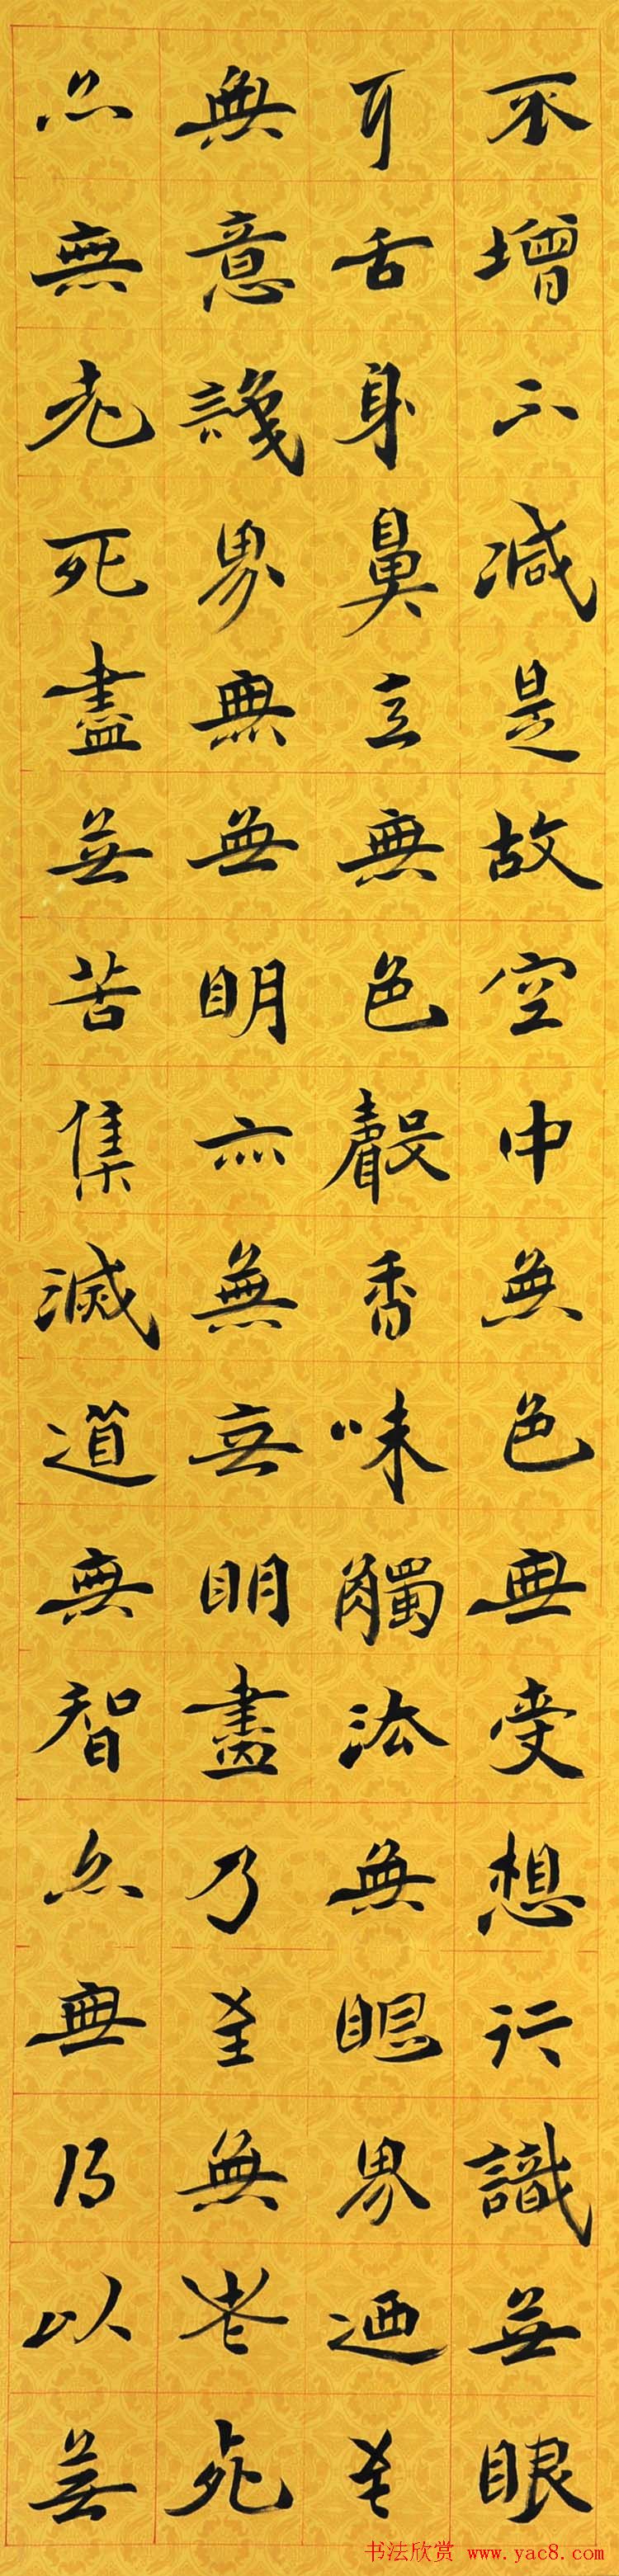 不增不減是故空中無色無受想行識無眼
耳舌身鼻意無色聲香味觸法無眼界迺至
無意識界無無明亦無無明盡乃至無老死
亦無老死盡無苦集滅道無智亦無得以無
书法欣赏 www.yac8.com